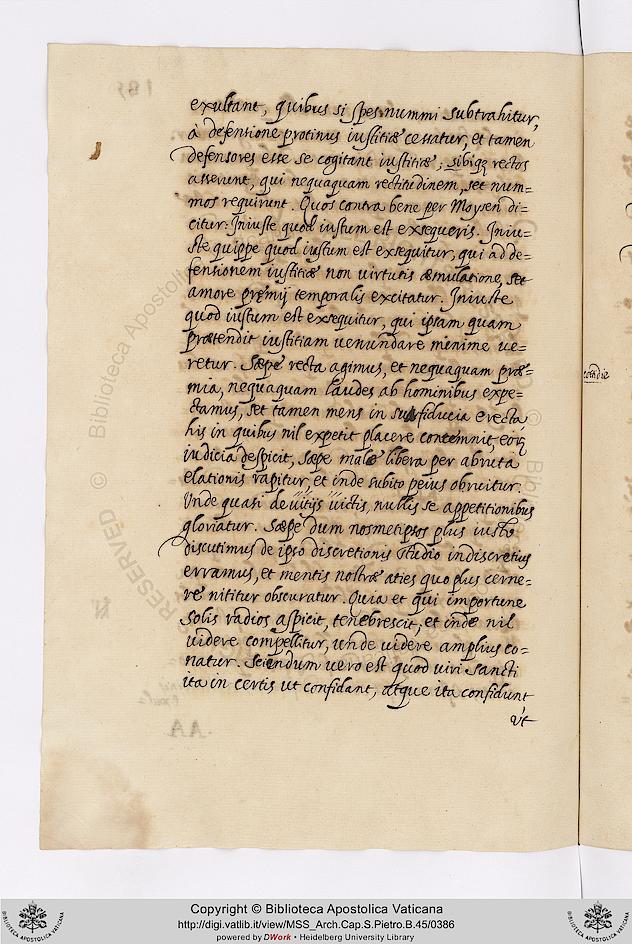 exultant, quibus si spes nummi subtrahitur,
à defensione protinus iustitiæ cessatur, et tamen
defensores esse se cogitant iustitiæ; sibiqꝫ rectos
asserunt, qui nequaquam rectitudinem, set num=
mos requirunt. Quos contra bene per Moysen di=
citur: Iniuste quod iustum est exsequeris. Iniu=
ste quippe quod iustum est exsequitur, qui ad de=
fensionem iustitiæ non virtutis æmulatione, set
amore præmij temporalis excitatur. Iniuste
quod iustum est exsequitur, qui ipsam quam
prætendit iustitiam uenundare minime ue=
retur. Sæpe recta agimus, et nequaquam præ=
mia, nequaquam laudes ab hominibus expe=
ctamus, set tamen mens in sua fiducia erecta
his in quibus nil expetit placere contemnit, eorꝫ
iudicia despicit, sæpe male libera per abruta
elationis rapitur, et inde subito peius obruitur.
Unde quasi de uitijs uictis, nullis se appetitionibus
gloriatur. Sæpe dum nosmetipsos plus iusto
discutimus de ipso discretionis studio indiscretius
erramus, et mentis nostræ aties quo plus cerne=
re nititur obscuratur. Quia et qui importune
solis radios aspicit, tenebrescit, et inde nil
videre compellitur, unde videre amplius co=
natur. Sciendum vero est quod viri sancti
ita in certis ut confidant, atque ita confidunt
ut
AA
RESERVED © Biblioteca Apostolica
Copyright © Biblioteca Apostolica Vaticana
http://digi.vatlib.it/view/MSS_Arch.Cap.S.Pietro.B.45/0386
powered by DWork • Heidelberg University Library